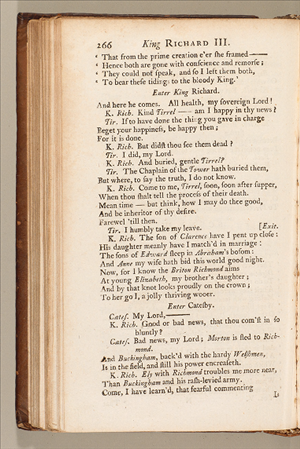 266 King RICHARD III.
‘ That from the prime creation e'er she framed——
‘ Hence both are gone with conscience and remorse;
‘ They could not speak, and so I left them both,
‘ To bear these tidings to the bloody King.’
Enter King Richard.
And here he comes. All health, my sovereign Lord!
K. Rich. Kind Tirrel —— am I happy in thy news?
Tir. If to have done the thing you gave in charge
Beget your happiness, be happy then;
For it is done.
K. Rich. But didst thou see them dead?
Tir. I did, my Lord.
K. Rich. And buried, gentle Tirrel?
Tir. The Chaplain of the Tower hath buried them,
But where, to say the truth, I do not know.
K. Rich. Come to me, Tirrel, soon, soon after supper,
When thou shalt tell the process of their death.
Mean time — but think, how I may do thee good,
And be inheritor of thy desire.
Farewel 'till then.
Tir. I humbly take my leave. [Exit.
K. Rich. The son of Clarence have I pent up close:
His daughter meanly have I match'd in marriage:
The sons of Edward sleep in Abraham's bosom:
And Anne my wife hath bid this world good night.
Now, for I know the Briton Richmond aims
At young Elizabeth, my brother's daughter;
And by that knot looks proudly on the crown;
To her go I, a jolly thriving wooer.
Enter Catesby.
Catef. My Lord,——
K. Rich. Good or bad news, that thou com'st in so
bluntly?
Catef. Bad news, my Lord; Morton is fled to Rich-
mond.
And Buckingham, back'd with the hardy Welshmen,
Is in the field, and still his power encreaseth.
K. Rich. Ely with Richmond troubles me more near,
Than Buckingham and his rash-levied army.
Come, I have learn'd, that fearful commenting
Is